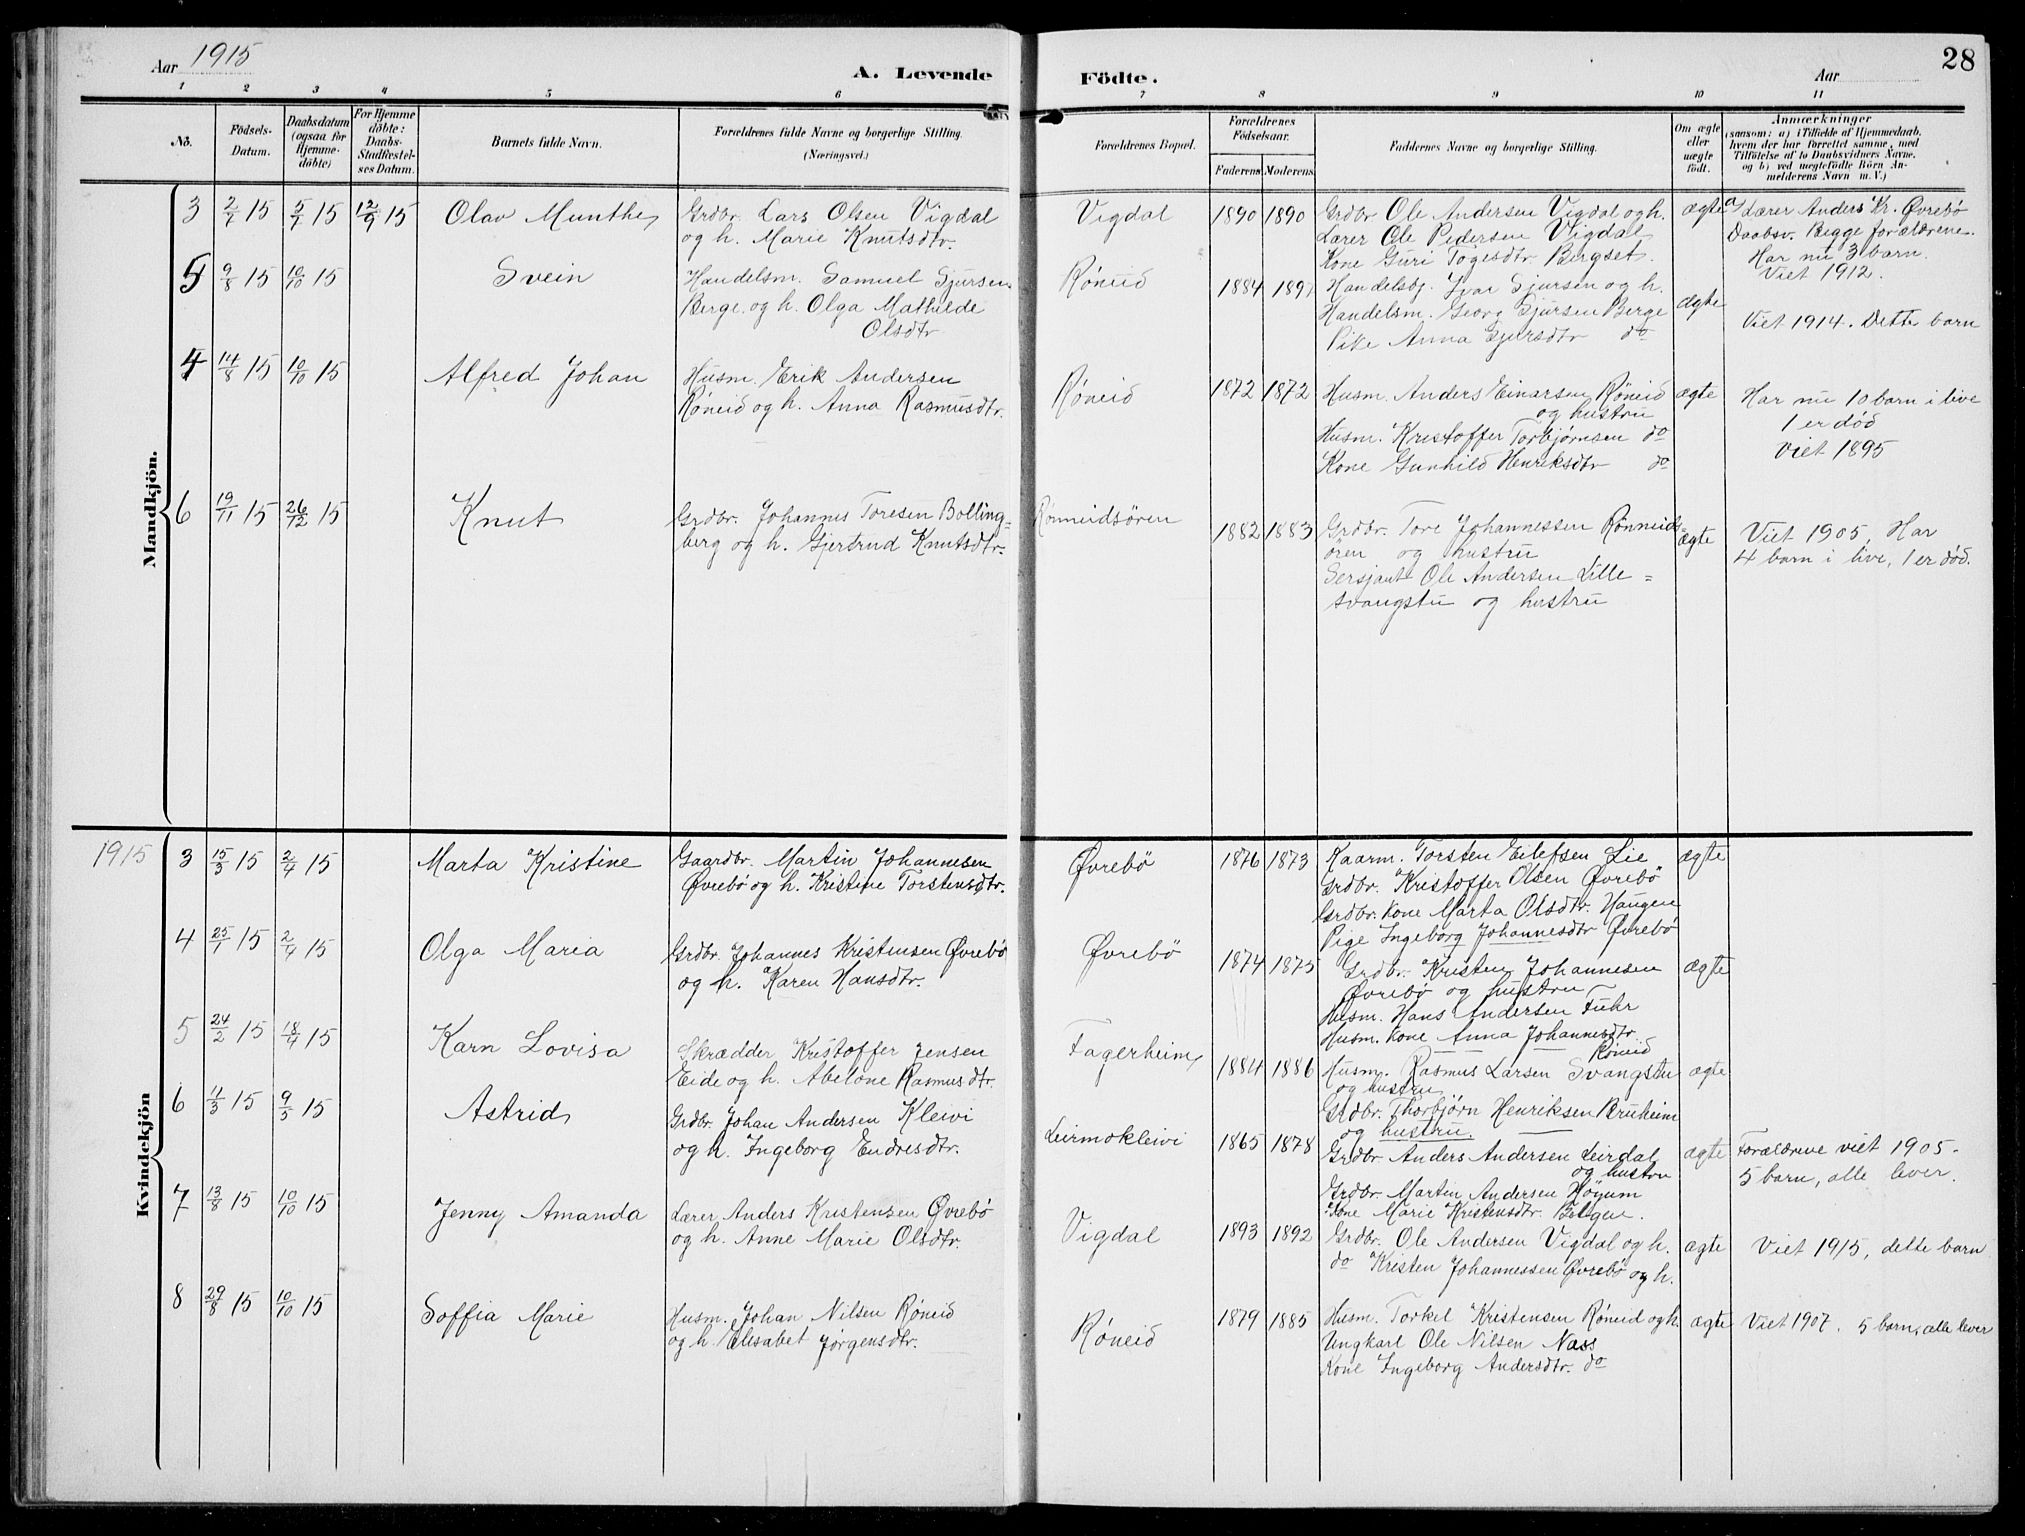 Aar 1915
A. Levende
Födte.
Aar
28
1 2 3 4 5 6 7 8 9 10 11
No.
Födsels-
Datum.
Daabsdatum
(ogsaa for
Hjemme-
döbte)
For Hjemme
döbte:
Daabs-
Stadfæstel-
ses Datum.
Barnets fulde Navn.
Forældrenes fulde Navne og borgerlige Stilling.
(Næringsvei.)
Forældrenes Bopæl.
Forældrenes
Födselsaar.
Faderens Moderens
Faddernes Navne og borgerlige Stilling.
Om ægte
eller
uægte
födt.
Anmærkninger
(saasom: a) i Tilfælde af Hjemmedaab,
hvem der har forrettet samme, med
Tilföielse af to Daabsvidners Navne.
og b) ved uegtefödte Börn An-
melderens Navn m.V.)
Mandkjön.
3 2/7 15 5/7 15 12/9 15
Olav Munthe
Grdbr. Lars Olsen Vigdal
og h. Marie Knutsdtr.
Vigdal
1890 1890
Grdbr Ole Andersen Vigdal og h.
Lærer Ole Pedersen Vigdal
Kone Guri Togesdtr Bergset.
ægte
a/ Lærer Anders Kr. Øvrebö
Daabsv. Begge forældrene.
Har nu 3 barn.
Viet 1912.
5 9/8 15 10/10 15
Svein
Handelsm. Samuel Sjursen
Berge og h. Olga Mathilde
Olsdtr
Røneid
1884 1891
Handelsbj. Ivar Sjursen og h.
Handelsm. Georg Sjursen Berge
Pike Anna Sjursdtr do
ægte
Viet 1914. Dette barn
4 14/8 15 10/10 15
Alfred Johan
Husm. Erik Andersen
Røneid og h. Anna Rasmusdtr.
Røneid
1872 1872
Husm. Anders Einarsen Røneid
og hustru
Husm. Kristoffer Torbjørnsen do
Kone Gunhild Henriksdtr do
ægte
Har nu 10 barn i live
1 er død
Viet 1895
6 19/11 15 26/12 15
Knut
Grdbr. Johannes Toresen Bolling-
berg og h. Gjertrud Knutsdtr.
Rönneidsören
1882 1883
Grdbr. Tore Johannessen Rönneids-
ören og hustru
Sersjant Ole Andersen Lille-
svangstu og hustru
ægte
Viet 1905, Har
4 barn i live, 1 er död.
1915
Kvindekjön
3 15/3 15 2/4 15
Marta Kristine
Gaardbr. Martin Johannesen
Øvrebö og h. Kristine Torstensdtr.
Øvrebö
1876 1873
Kaarm. Torsten Eilefsen Lie
Grdbr. Kristoffer Olsen Øvrebö
Grdbr. Kone Marta Olsdtr. Haugen
Pige Ingeborg Johannesdtr Øvrebö
ægte
4 25/1 15 2/4 15
Olga Maria
Grdbr. Johannes Kristensen Øvrebö
og h. Karen Hansdtr.
Øvrebö
1874 1875
Grdbr. Kristen Johannesen
Øvrebö og hustru
Husm. Hans Andersen Fuhr
Husm. kone Anna Johannesdtr.
Røneid
ægte
5 24/2 15 18/4 15
Karn Lovisa
Skrædder Kristoffer Jensen
Eide og h. Abelone Rasmusdtr.
Fagerheim
1884 1886
Husm. Rasmus Larsen Svangstu
og hustru
Grdbr. Thorbjörn Henriksen Bruheim
og hustru.
ægte
6 4/3 15 9/5 15
Astrid
Grdbr. Johan Andersen Kleivi
og h. Ingeborg Endresdtr.
Leirmokleivi
1865 1878
Grdbr. Anders Andersen Leirdal
og hustru
Grdbr. Martin Andersen Höyum
Kone Marie Kristensdtr. Bolgen.
ægte
Forældrene viet 1905.
5 barn, alle lever.
7 13/8 15 10/10 15
Jenny Amanda
Lærer Anders Kristensen Øvrebö
og h. Anne Marie Olsdtr.
Vigdal
1893 1892
Grdbr. Ole Andersen Vigdal og h.
do Kristen Johannessen Øvrebö og h.
ægte
Viet 1915, dette barn
8 29/8 15 10/10 15
Soffia Marie
Husm. Johan Nilsen Røneid
og h. Elisabet Jørgensdtr.
Røneid
1879 1885
Husm. Torkel Kristensen Røneid og h.
Ungkarl Ole Nilsen Næss
Kone Ingeborg Andersdtr. do
ægte
Viet 1907. 5 barn, alle lever